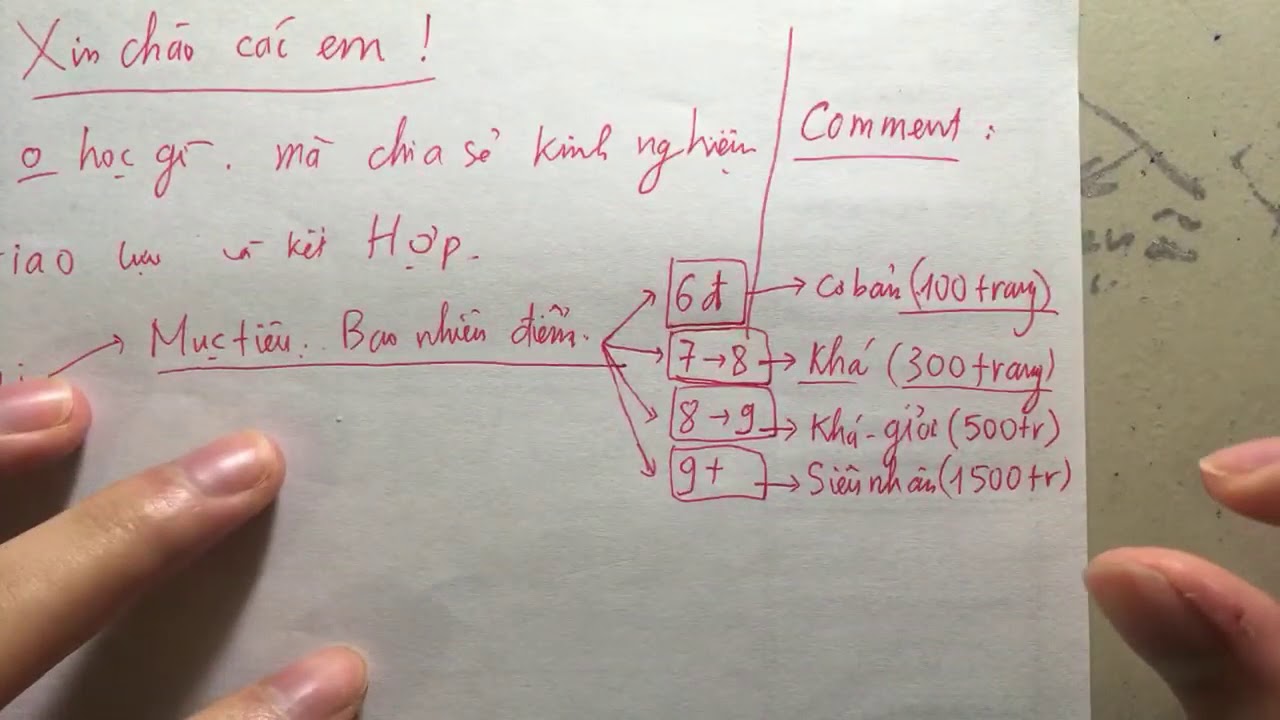 Xin chào các em !
o học gì . mà chia sẻ kinh nghiệm
iao lưu và kết Hợp.
Mục tiêu. Bao nhiêu điểm.
Comment :
6đ → Cơ bản (100 trang)
7 → 8 → Khá (300 trang)
8 → 9 → Khá - giỏi (500tr)
9+ → Siêu nhân (1500 tr)